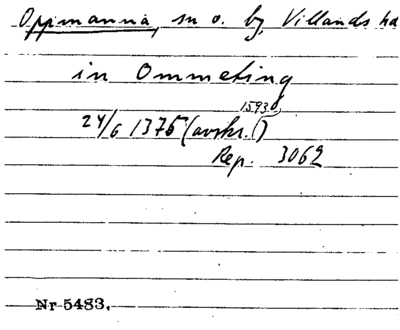 Oppmanna, sn o. by, Villands hd
in Ommeting
1593
24/6 1375 (avskr. )
Rep. 3062
Nr 5483.